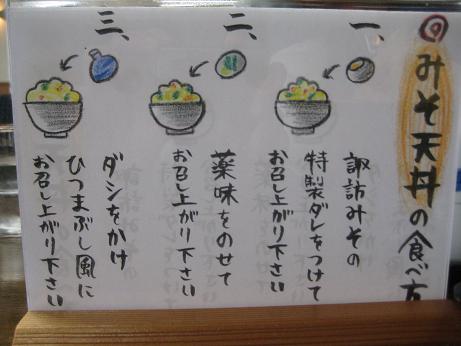 みそ天丼の食べ方
一、
諏訪みその
特製ダレをつけて
お召し上がり下さい
二、
薬味をのせて
お召し上がり下さい
三、
ダシをかけ
ひつまぶし風に
お召し上がり下さい